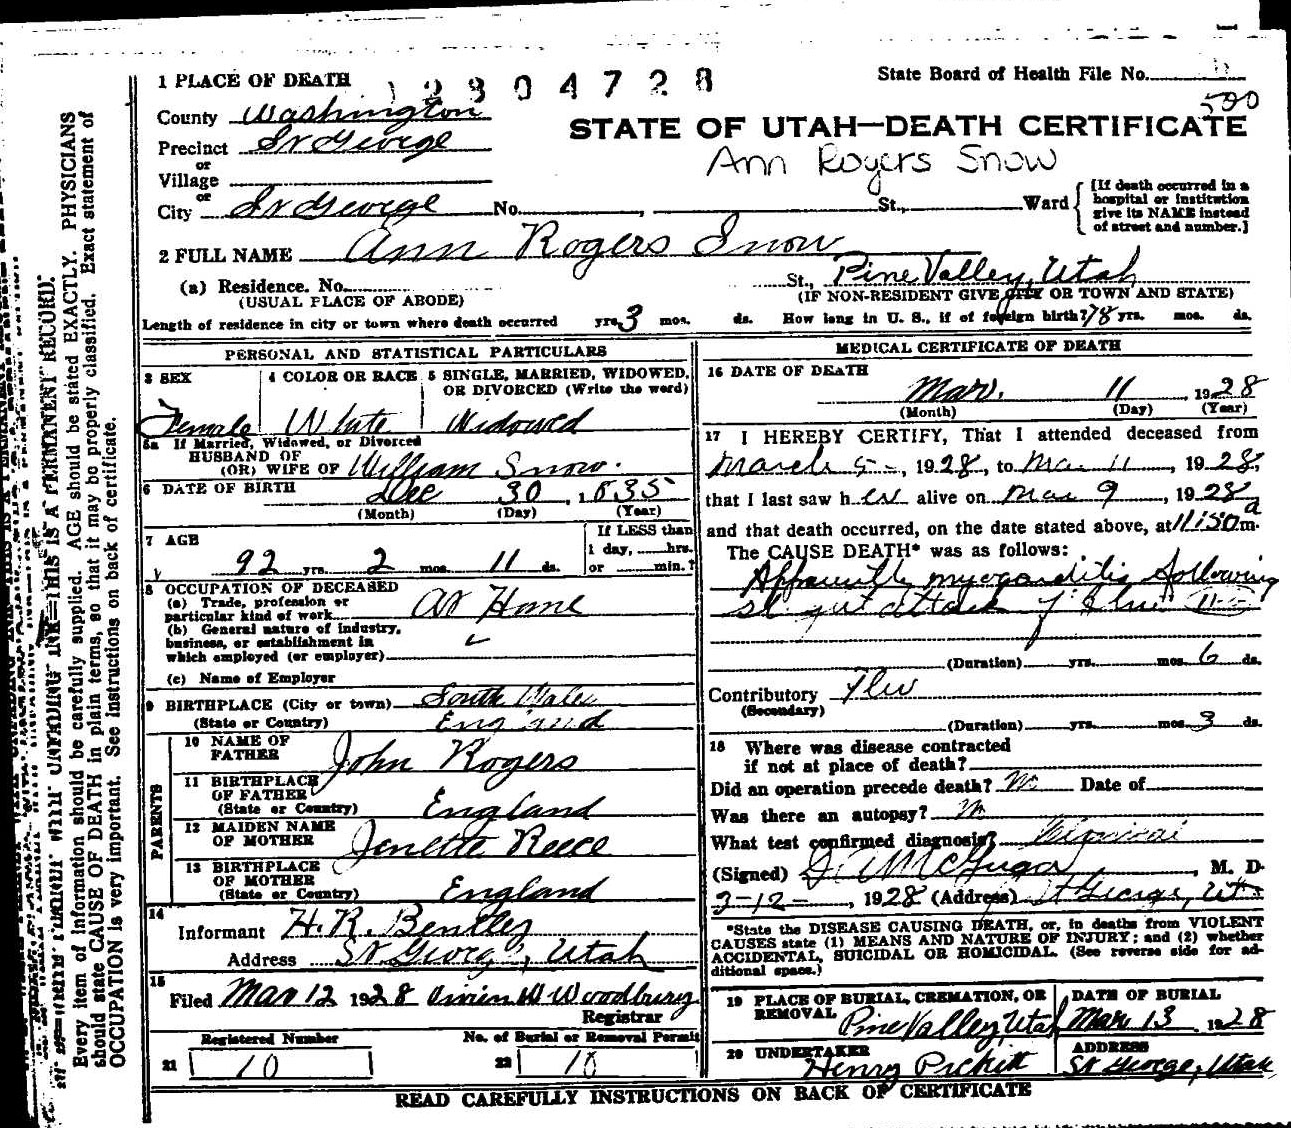 1 PLACE OF DEATH
12804728
State Board of Health File No.
500
County Washington
STATE OF UTAH—DEATH CERTIFICATE
Precinct St George
Ann Rogers Snow
or
Village
or
City St George No. , St., Ward
[If death occurred in a
hospital or institution
give its NAME instead
of street and number.]
2 FULL NAME Ann Rogers Snow
(a) Residence. No. St., Pine Valley, Utah
(USUAL PLACE OF ABODE) (IF NON-RESIDENT GIVE CITY OR TOWN AND STATE)
Length of residence in city or town where death occurred yrs. 3 mos. ds. How long in U. S., if of foreign birth? 78 yrs. mos. ds.
PERSONAL AND STATISTICAL PARTICULARS
3 SEX
Female
4 COLOR OR RACE
White
5 SINGLE, MARRIED, WIDOWED,
OR DIVORCED (Write the word)
Widowed
5a If Married, Widowed, or Divorced
HUSBAND OF
(OR) WIFE OF William Snow.
6 DATE OF BIRTH Dec 30, 1835
(Month) (Day) (Year)
7 AGE
92 yrs. 2 mos. 11 ds.
If LESS than
1 day, hrs.
or min.?
8 OCCUPATION OF DECEASED
(a) Trade, profession or
particular kind of work At Home
(b) General nature of industry,
business, or establishment in
which employed (or employer)
(c) Name of Employer
9 BIRTHPLACE (City or town) South Wales
(State or Country) England
PARENTS
10 NAME OF
FATHER John Rogers
11 BIRTHPLACE
OF FATHER
(State or Country) England
12 MAIDEN NAME
OF MOTHER Jenette Reece
13 BIRTHPLACE
OF MOTHER
(State or Country) England
14
Informant H. R. Bentley
Address St George, Utah
15
Filed Mar 12 1928 Vivien W Woodbury
Registrar
Registered Number
21 10
No. of Burial or Removal Permit
22 10
MEDICAL CERTIFICATE OF DEATH
16 DATE OF DEATH
Mar. 11, 1928
(Month) (Day) (Year)
17 I HEREBY CERTIFY, That I attended deceased from
March 5, 1928, to Mar 11, 1928,
that I last saw her alive on Mar 9, 1928
and that death occurred, on the date stated above, at 11:50 a m.
The CAUSE DEATH* was as follows:
Apparently myocarditis following
attack of flu
(Duration) yrs. mos. 6 ds.
Contributory Flu
(Secondary)
(Duration) yrs. mos. 3 ds.
18 Where was disease contracted
if not at place of death?
Did an operation precede death? No Date of
Was there an autopsy? No
What test confirmed diagnosis?
(Signed) D. A. McGregor, M. D.
3-12-, 1928 (Address) St George, Ut
*State the DISEASE CAUSING DEATH, or, in deaths from VIOLENT
CAUSES state (1) MEANS AND NATURE OF INJURY; and (2) whether
ACCIDENTAL, SUICIDAL OR HOMICIDAL. (See reverse side for ad-
ditional space.)
19 PLACE OF BURIAL, CREMATION, OR
REMOVAL Pine Valley, Utah
DATE OF BURIAL
Mar 13 1928
20 UNDERTAKER
Henry Pickett
ADDRESS
St George, Utah
READ CAREFULLY INSTRUCTIONS ON BACK OF CERTIFICATE
WITH UNFADING INK—THIS IS A PERMANENT RECORD.
Every item of information should be carefully supplied. AGE should be stated EXACTLY. PHYSICIANS
should state CAUSE OF DEATH in plain terms, so that it may be properly classified. Exact statement of
OCCUPATION is very important. See instructions on back of certificate.